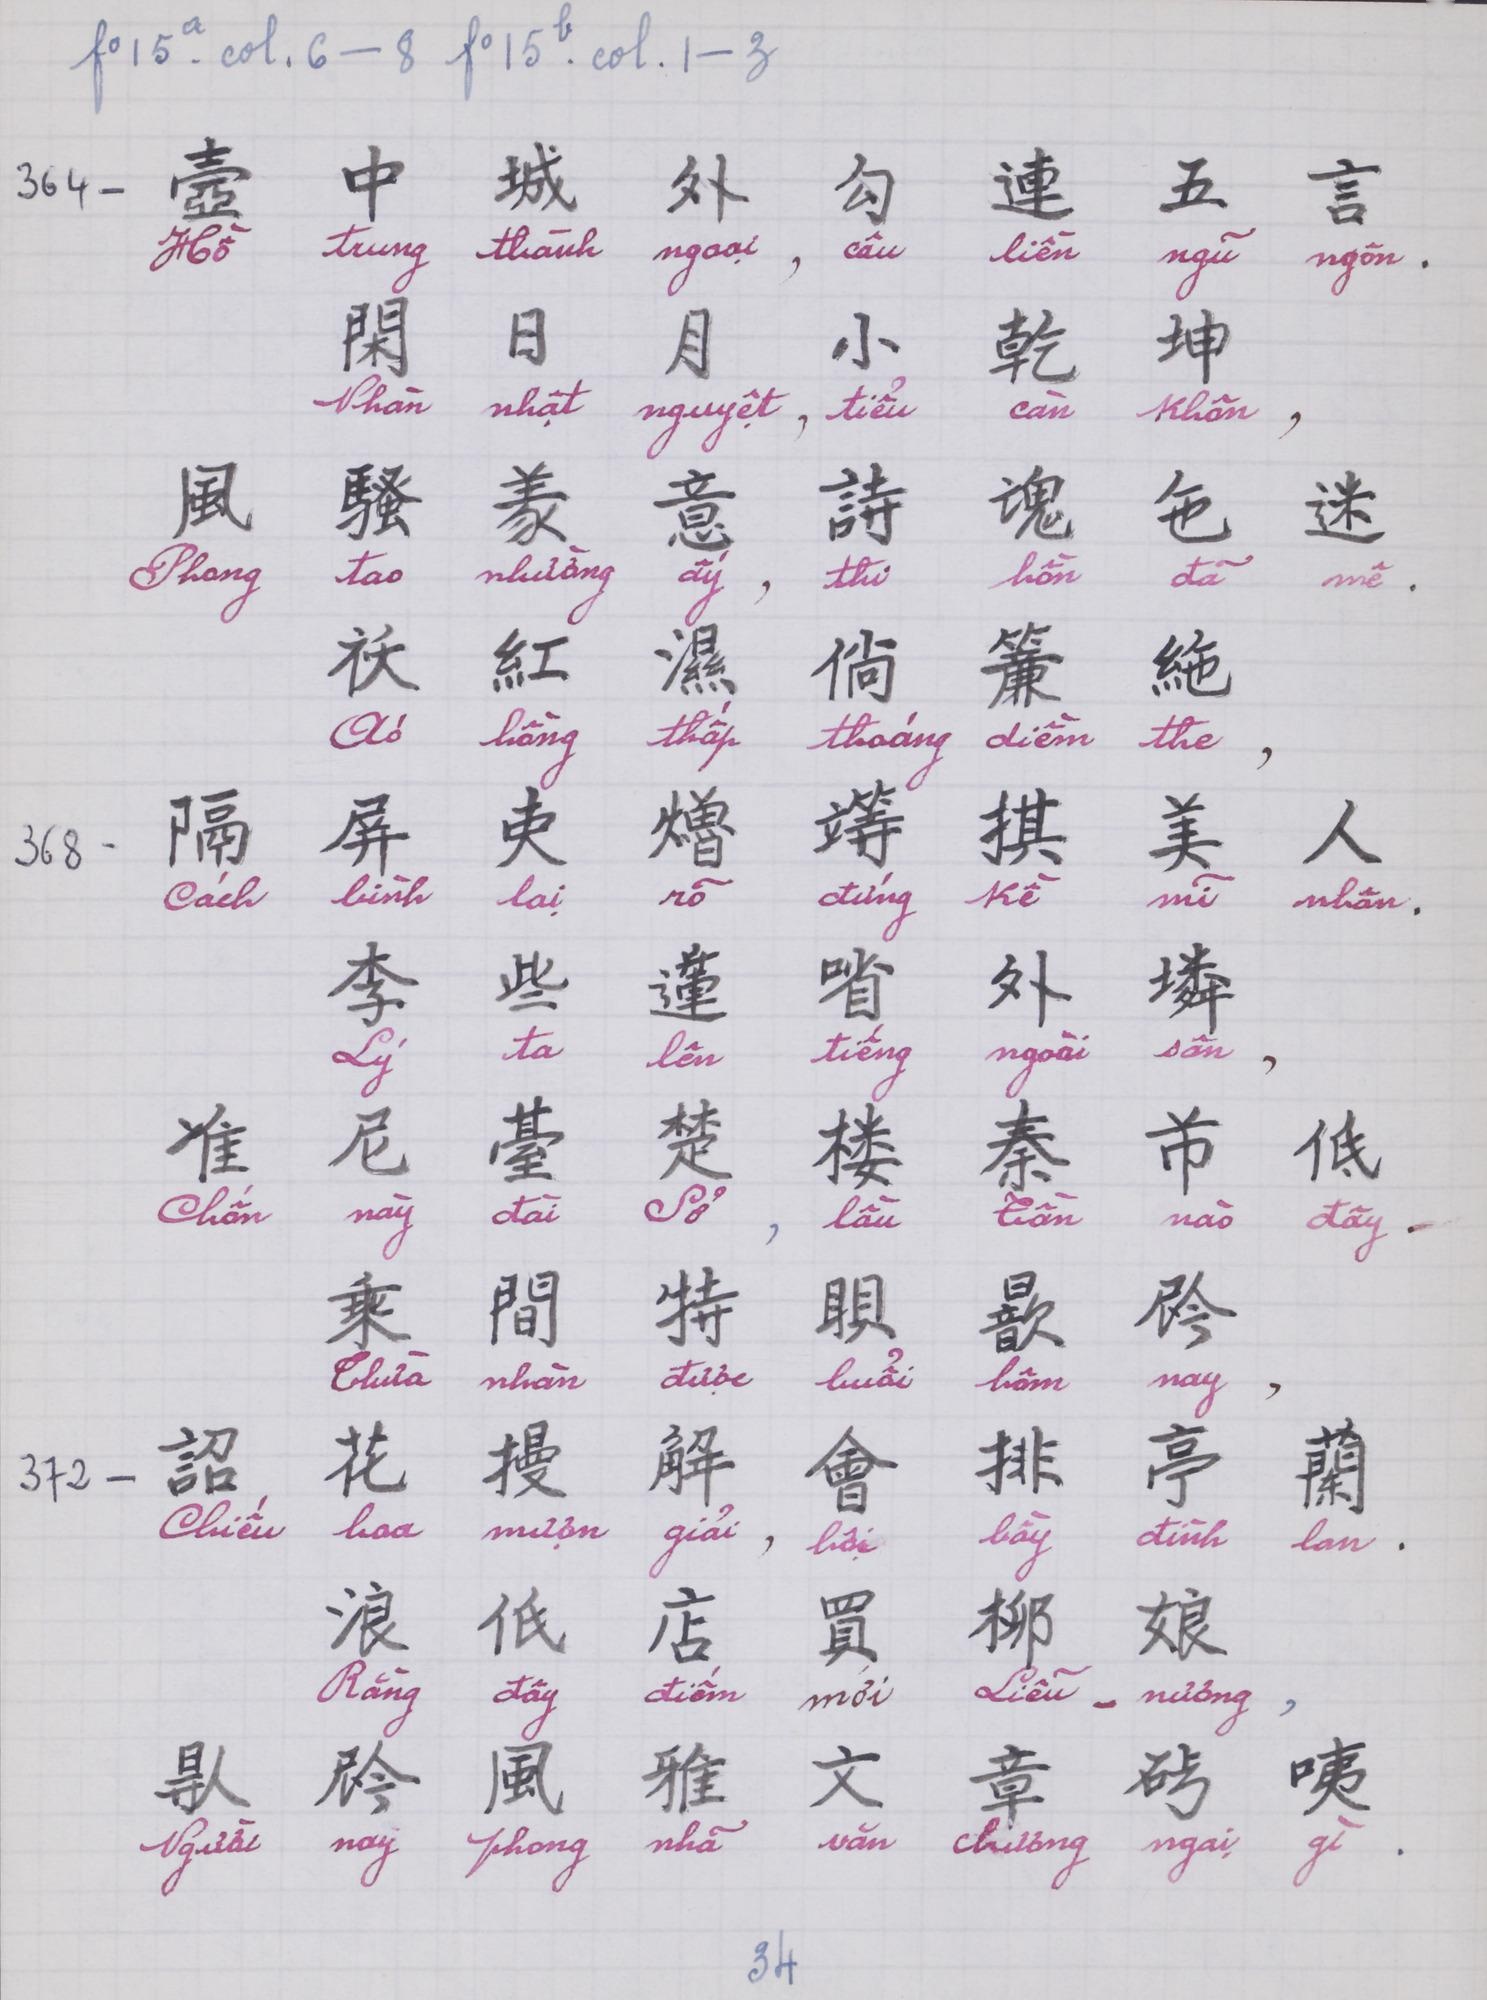 fº 15ª. col. 6 – 8 fº 15ᵇ. col. 1 – 3
364 – 壺 中 城 外 勾 連 五 言
Hồ trung thành ngoại, câu liền ngũ ngôn.
閑 日 月 小 乾 坤
Nhàn nhật nguyệt, tiểu càn khôn,
風 騷 羕 意 詩 魂 㐌 迷
Phong tao nhường ấy, thi hồn đã mê.
袄 紅 濕 倘 簾 絁
Aó hồng thấp thoáng diềm the,
368 - 隔 屏 吏 𤏣 䇏 掑 美 人
Cách bình lại rõ đứng kề mĩ nhân.
李 些 蓮 㗂 外 𡑝
Lý ta lên tiếng ngoài sân,
准 尼 臺 楚 楼 秦 芇 低
Chốn này đài Sở, lầu Tần nào đây.
乘 間 特 𣇜 歆 𠉞
Thừa nhàn được buổi hôm nay,
372 – 詔 花 摱 解 會 排 亭 蘭
Chiếu hoa mượn giải, hội bày đình lan.
浪 低 店 買 柳 娘
Rằng đây điếm mới Liễu - nương,
𠊛 𠉞 風 雅 文 章 砖 咦
Người nay phong nhã văn chương ngại gì.
34